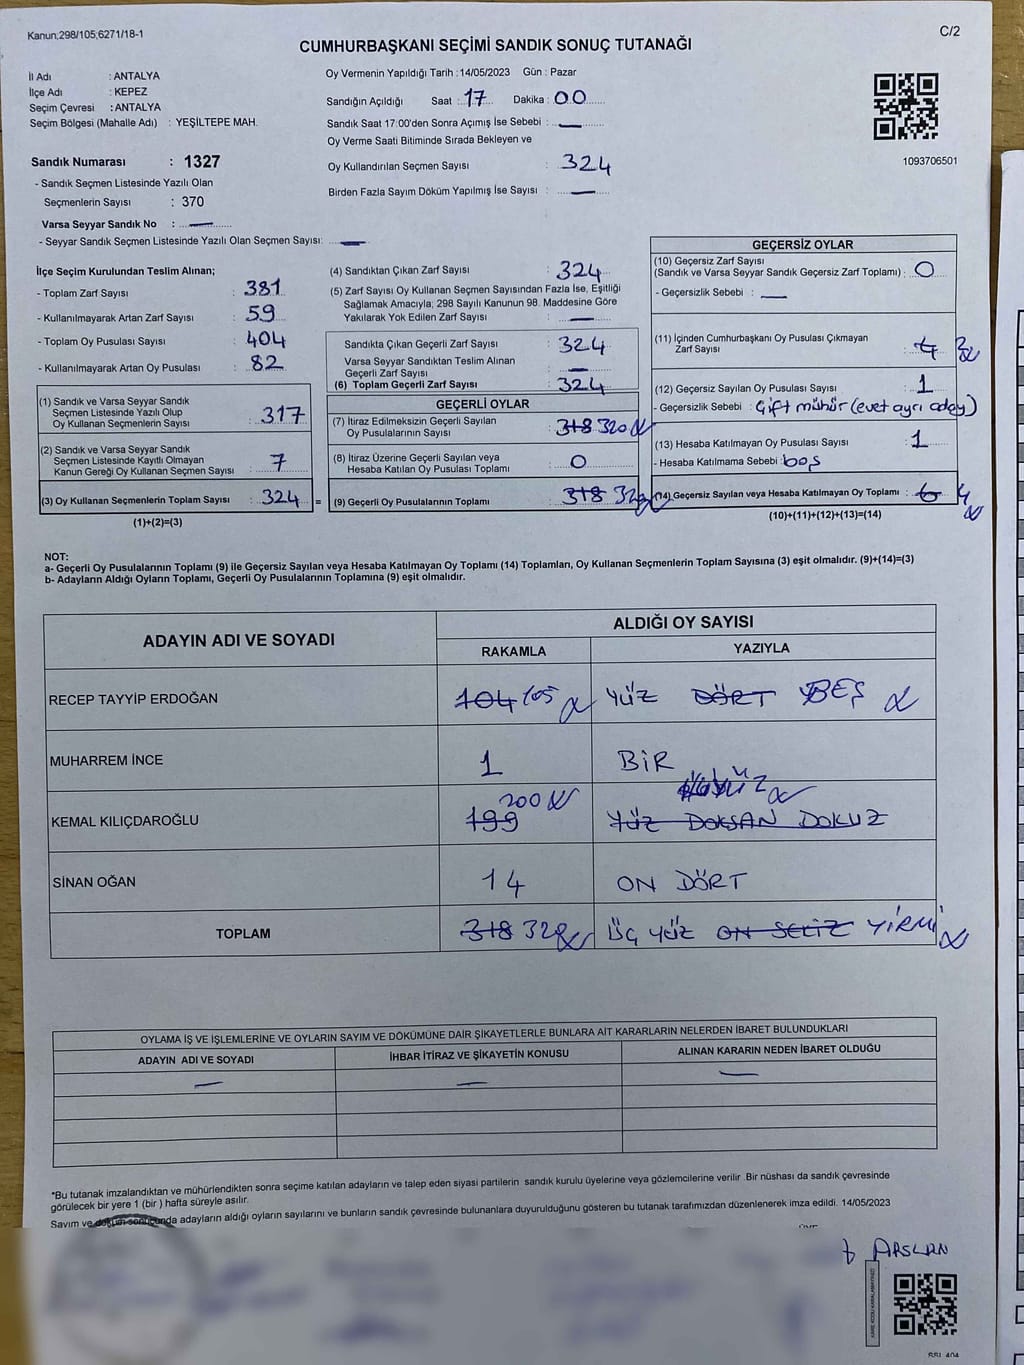 Kanun;298/105;6271/18-1
C/2
CUMHURBAŞKANI SEÇİMİ SANDIK SONUÇ TUTANAĞI
İl Adı : ANTALYA
İlçe Adı : KEPEZ
Seçim Çevresi : ANTALYA
Seçim Bölgesi (Mahalle Adı) : YEŞİLTEPE MAH.
Sandık Numarası : 1327
- Sandık Seçmen Listesinde Yazılı Olan
Seçmenlerin Sayısı : 370
Varsa Seyyar Sandık No : —
- Seyyar Sandık Seçmen Listesinde Yazılı Olan Seçmen Sayısı: —
Oy Vermenin Yapıldığı Tarih : 14/05/2023 Gün : Pazar
Sandığın Açıldığı Saat : 17 Dakika : 00
Sandık Saat 17:00'den Sonra Açımış İse Sebebi : —
Oy Verme Saati Bitiminde Sırada Bekleyen ve
Oy Kullandırılan Seçmen Sayısı : 324
Birden Fazla Sayım Döküm Yapılmış İse Sayısı : —
1093706501
İlçe Seçim Kurulundan Teslim Alınan;
- Toplam Zarf Sayısı : 381
- Kullanılmayarak Artan Zarf Sayısı : 59
- Toplam Oy Pusulası Sayısı : 404
- Kullanılmayarak Artan Oy Pusulası : 82
(1) Sandık ve Varsa Seyyar Sandık
Seçmen Listesinde Yazılı Olup
Oy Kullanan Seçmenlerin Sayısı : 317
(2) Sandık ve Varsa Seyyar Sandık
Seçmen Listesinde Kayıtlı Olmayan
Kanun Gereği Oy Kullanan Seçmen Sayısı : 7
(3) Oy Kullanan Seçmenlerin Toplam Sayısı : 324 =
(1)+(2)=(3)
(4) Sandıktan Çıkan Zarf Sayısı : 324
(5) Zarf Sayısı Oy Kullanan Seçmen Sayısından Fazla İse, Eşitliği
Sağlamak Amacıyla; 298 Sayılı Kanunun 98. Maddesine Göre
Yakılarak Yok Edilen Zarf Sayısı : —
Sandıkta Çıkan Geçerli Zarf Sayısı : 324
Varsa Seyyar Sandıktan Teslim Alınan
Geçerli Zarf Sayısı : —
(6) Toplam Geçerli Zarf Sayısı : 324
GEÇERLİ OYLAR
(7) İtiraz Edilmeksizin Geçerli Sayılan
Oy Pusulalarının Sayısı : 318 320
(8) İtiraz Üzerine Geçerli Sayılan veya
Hesaba Katılan Oy Pusulası Toplamı : 0
(9) Geçerli Oy Pusulalarının Toplamı : 318 320
GEÇERSİZ OYLAR
(10) Geçersiz Zarf Sayısı
(Sandık ve Varsa Seyyar Sandık Geçersiz Zarf Toplamı) : 0
- Geçersizlik Sebebi : —
(11) İçinden Cumhurbaşkanı Oy Pusulası Çıkmayan
Zarf Sayısı : 4 2
(12) Geçersiz Sayılan Oy Pusulası Sayısı : 1
- Geçersizlik Sebebi : Çift mühür (evet ayrı aday)
(13) Hesaba Katılmayan Oy Pusulası Sayısı : 1
- Hesaba Katılmama Sebebi : boş
(14) Geçersiz Sayılan veya Hesaba Katılmayan Oy Toplamı : 6 4
(10)+(11)+(12)+(13)=(14)
NOT:
a- Geçerli Oy Pusulalarının Toplamı (9) ile Geçersiz Sayılan veya Hesaba Katılmayan Oy Toplamı (14) Toplamları, Oy Kullanan Seçmenlerin Toplam Sayısına (3) eşit olmalıdır. (9)+(14)=(3)
b- Adayların Aldığı Oyların Toplamı, Geçerli Oy Pusulalarının Toplamına (9) eşit olmalıdır.
ADAYIN ADI VE SOYADI ALDIĞI OY SAYISI
RAKAMLA YAZIYLA
RECEP TAYYİP ERDOĞAN 104 105 YÜZ DÖRT BEŞ
MUHARREM İNCE 1 BİR
KEMAL KILIÇDAROĞLU 199 200 YÜZ DOKSAN DOKUZ
SİNAN OĞAN 14 ON DÖRT
TOPLAM 318 320 ÜÇ YÜZ ON SEKİZ YİRMİ
OYLAMA İŞ VE İŞLEMLERİNE VE OYLARIN SAYIM VE DÖKÜMÜNE DAİR ŞİKAYETLERLE BUNLARA AİT KARARLARIN NELERDEN İBARET BULUNDUKLARI
ADAYIN ADI VE SOYADI İHBAR İTİRAZ VE ŞİKAYETİN KONUSU ALINAN KARARIN NEDEN İBARET OLDUĞU
— — —
*Bu tutanak imzalandıktan ve mühürlendikten sonra seçime katılan adayların ve talep eden siyasi partilerin sandık kurulu üyelerine veya gözlemcilerine verilir .Bir nüshası da sandık çevresinde
görülecek bir yere 1 (bir ) hafta süreyle asılır.
Sayım ve döküm sonucunda adayların aldığı oyların sayılarını ve bunların sandık çevresinde bulunanlara duyurulduğunu gösteren bu tutanak tarafımızdan düzenlenerek imza edildi. 14/05/2023
ARSLAN